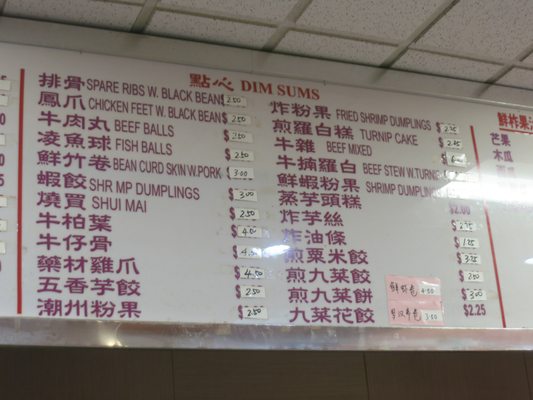 點心 DIM SUMS
排骨 SPARE RIBS W. BLACK BEAN $2.50
鳳爪 CHICKEN FEET W. BLACK BEAN $2.50
牛肉丸 BEEF BALLS $2.50
凌魚球 FISH BALLS $2.50
鮮竹卷 BEAN CURD SKIN W.PORK $3.00
蝦餃 SHR MP DUMPLINGS $3.00
燒買 SHUI MAI $2.50
牛柏葉 $4.00
牛仔骨 $4.50
藥材雞爪 $4.50
五香芋餃 $2.50
潮州粉果 $2.50
炸粉果 FRIED SHRIMP DUMPLINGS $2.25
煎羅白糕 TURNIP CAKE $2.25
牛雜 BEEF MIXED
牛腩羅白 BEEF STEW W.TURNIP
鮮蝦粉果 SHRIMP DUMPLINGS
蒸芋頭糕 $2.00
炸芋絲 $2.25
炸油條 $1.25
煎粟米餃 $3.25
煎九菜餃 $2.50
煎九菜餅 $3.00
九菜花餃 $2.25
4.50
3.00
鮮榨果
芒果
木瓜